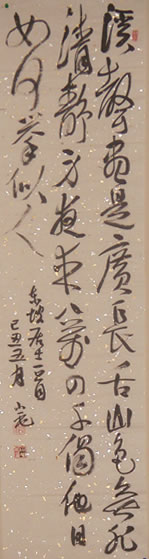 溪聲盡是廣長舌山色無非
清靜身夜来八萬四千偈他日
如何擧似人
東坡居士
己丑五月